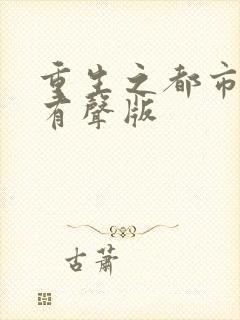 重生之都市
有聲版
古蕭